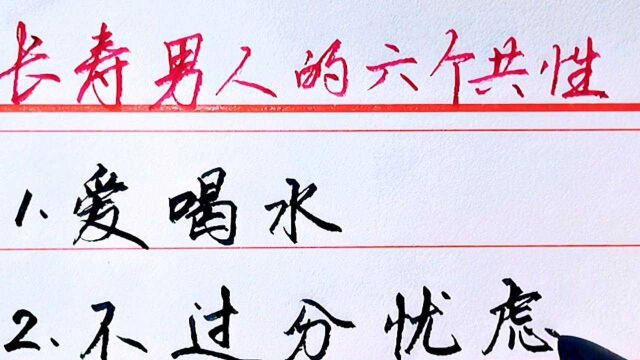 长寿男人的六个共性
1.爱喝水
2.不过分忧虑